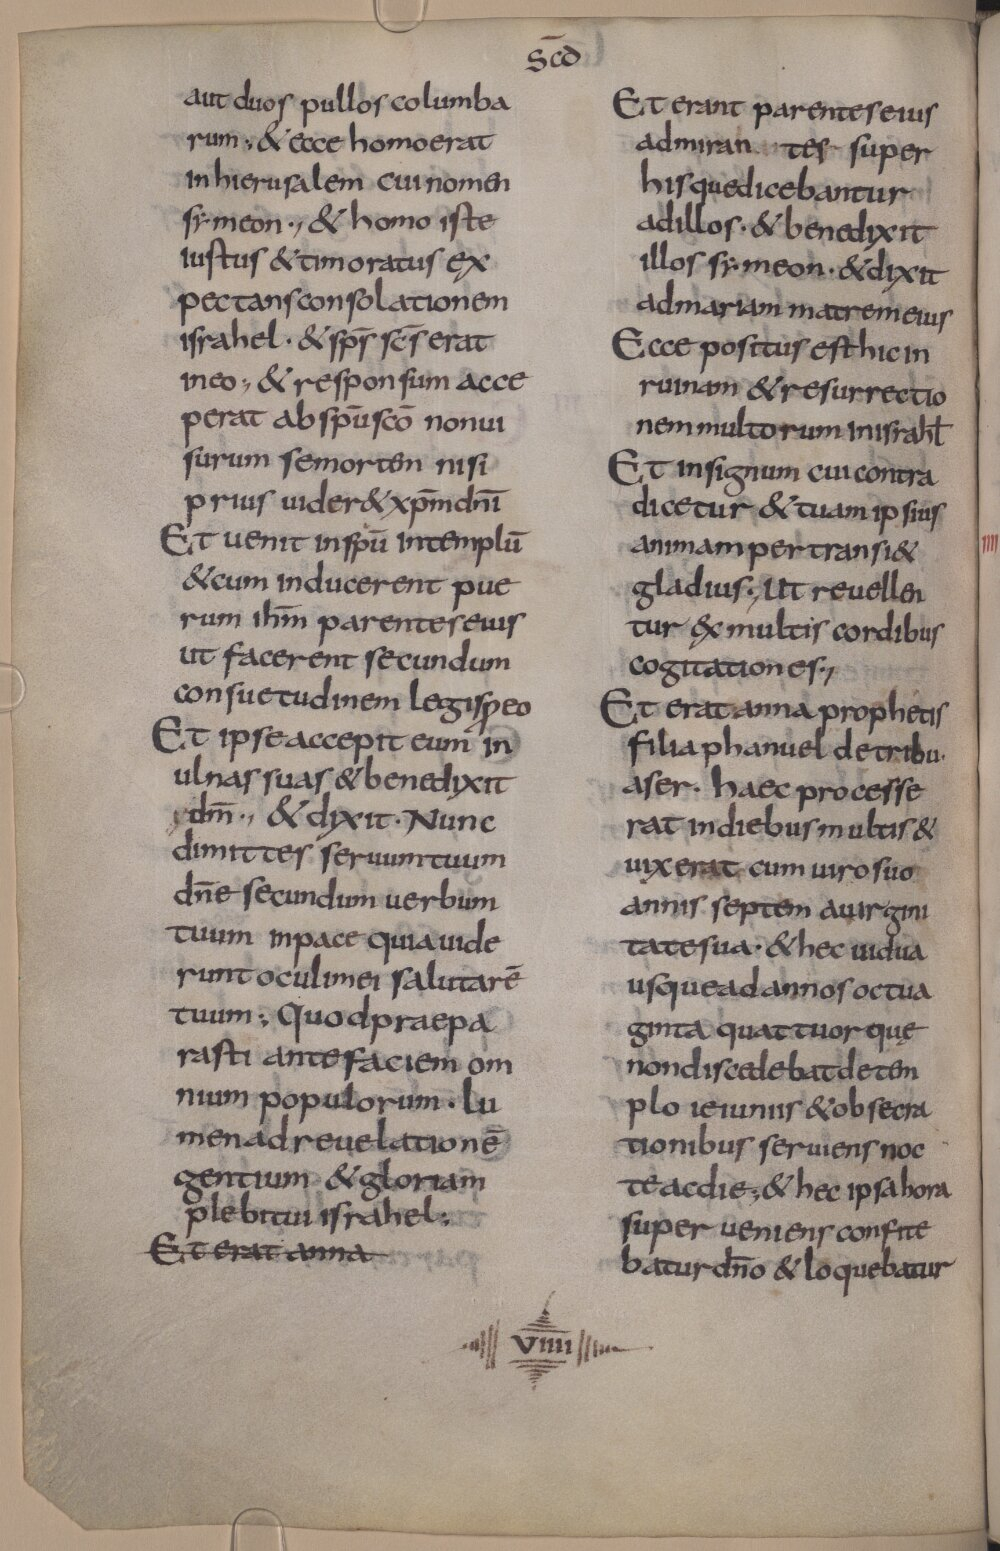 Sc̄d
aut duos pullos columba
rum; & ecce homo erat
in hierusalem cui nomen
symeon., & homo iste
iustus & timoratus ex
pectans consolationem
israhel. & sp̄s sc̄s erat
in eo; & responsum acce
perat ab spū scō non ui
surum se mortem nisi
prius uider& xp̄m dn̄i
Et uenit in spū in templū
& cum inducerent pue
rum ih̄m parentes eius
ut facerent secundum
consuetudinem legis p eo
Et ipse accepit eum in
ulnas suas & benedixit
dm̄., & dixit. Nunc
dimittes seruum tuum
dn̄e secundum uerbum
tuum in pace quia uide
runt oculi mei salutarē
tuum; Quod praepa
rasti ante faciem om
nium populorum. lu
men ad reuelationē
gentium & gloriam
plebi tui israhel;
Et erat anna
Et erant parentes eius
admiran tes super
his que dicebantur
ad illos. & benedixit
illos symeon. & dixit
ad mariam matrem eius
Ecce positus est hic in
ruinam & resurrectio
nem multorum in israhl̄
Et in signum cui contra
dicetur & tuam ipsius
animam pertransi&
gladius., Ut reuellen
tur ex multis cordibus
cogitationes.,
Et erat anna prophetis
filia phanuel de tribu.
aser. haec processe
rat in diebus multis &
uixerat cum uiro suo
annis septem a uirgini
tate sua. & hec uidua
usque ad annos octua
ginta quattuor quę
non discedebat de tem
plo ieiuniis & obsecra
tionibus seruiens noc
te ac die; & hec ipsa hora
super ueniens confite
batur dn̄o & loquebatur
VIIII
IIII